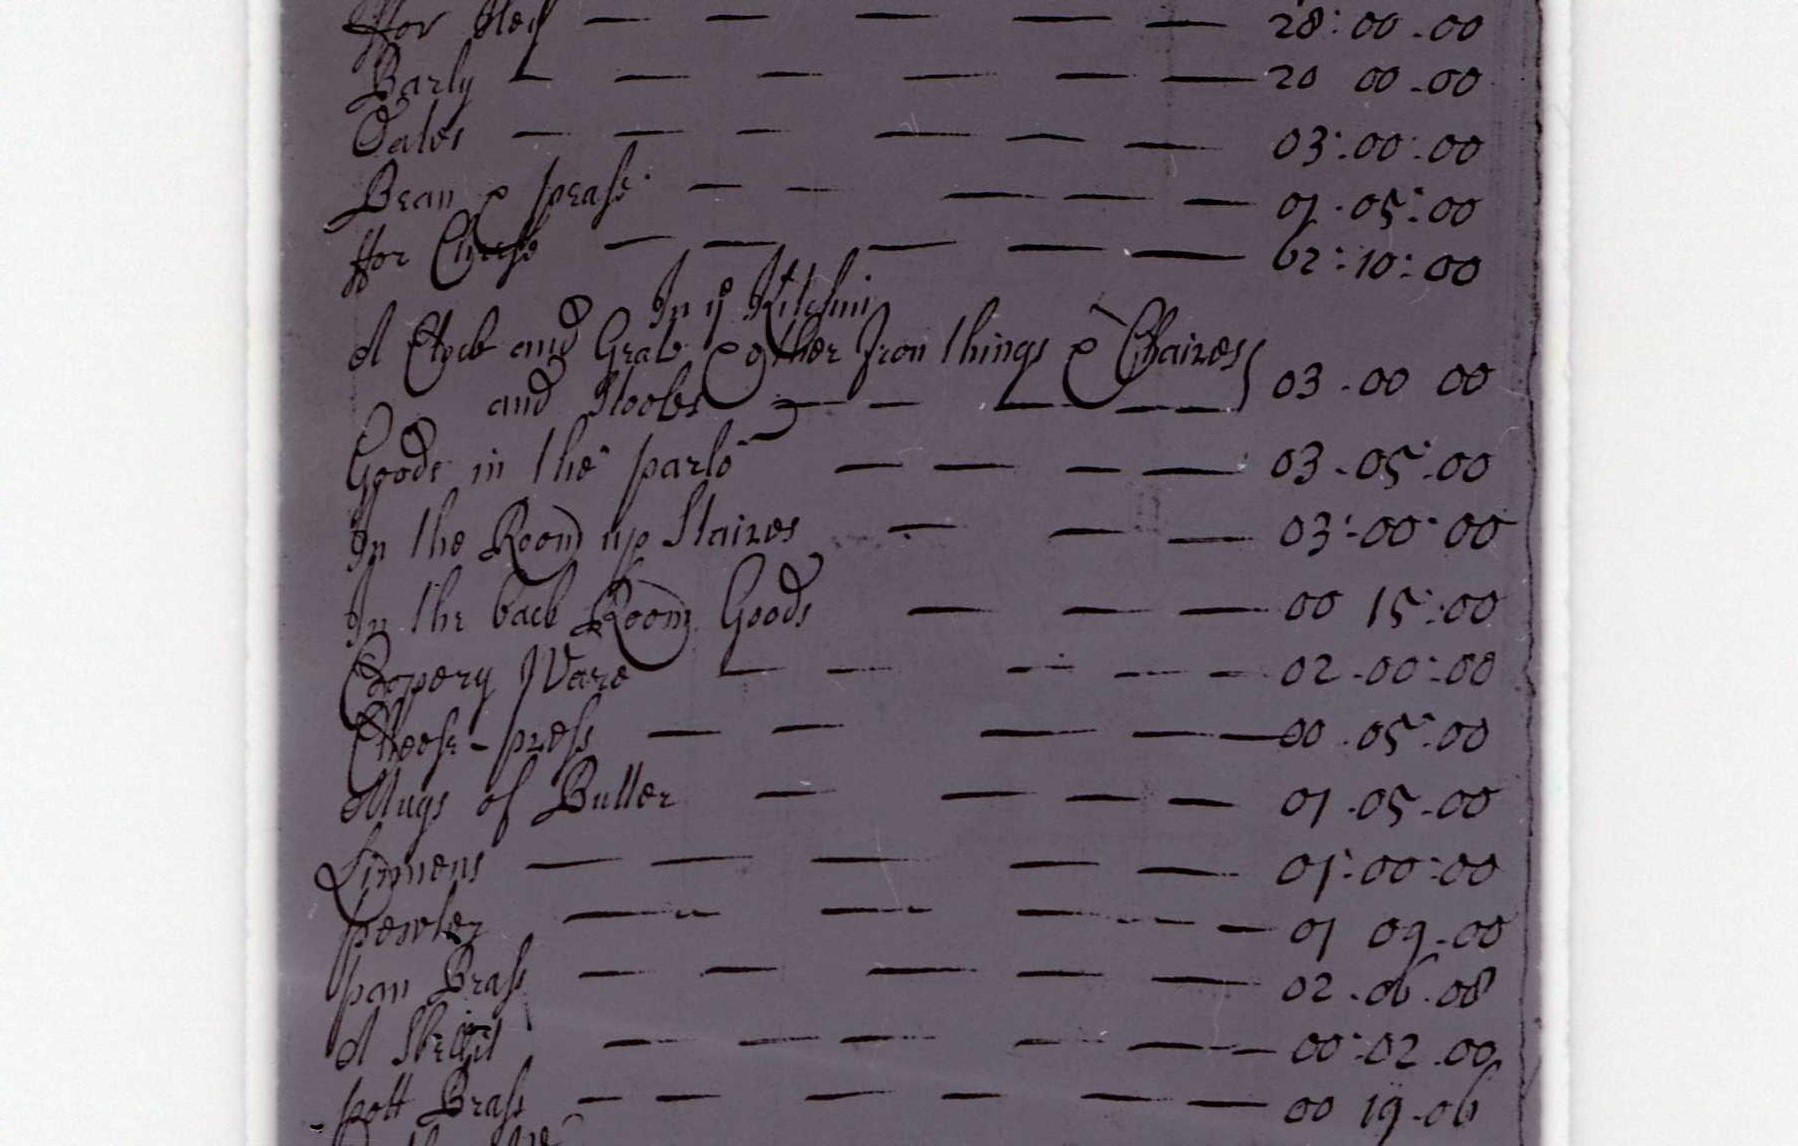 ffor Hey 28:00.00
Barly 20 00.00
Oates 03:00:00
Bean & pease 01.05:00
ffor Cheese 62:10:00
In ye Kitchin
A Clock and Grate & other Iron things & Chaires
and Stooles 03.00 00
Goods in the parlo 03.05.00
In the Room up Staires 03:00:00
In the back Room Goods 00 15:00
Coopery Ware 02.00:00
Cheese-press 00.05:00
Mugs of Butter 01.05.00
Linnens 01:00:00
pewter 01 09.00
pan Brass 02.06.08
A Skellit 00:02.00
pott Brass 00 19.06